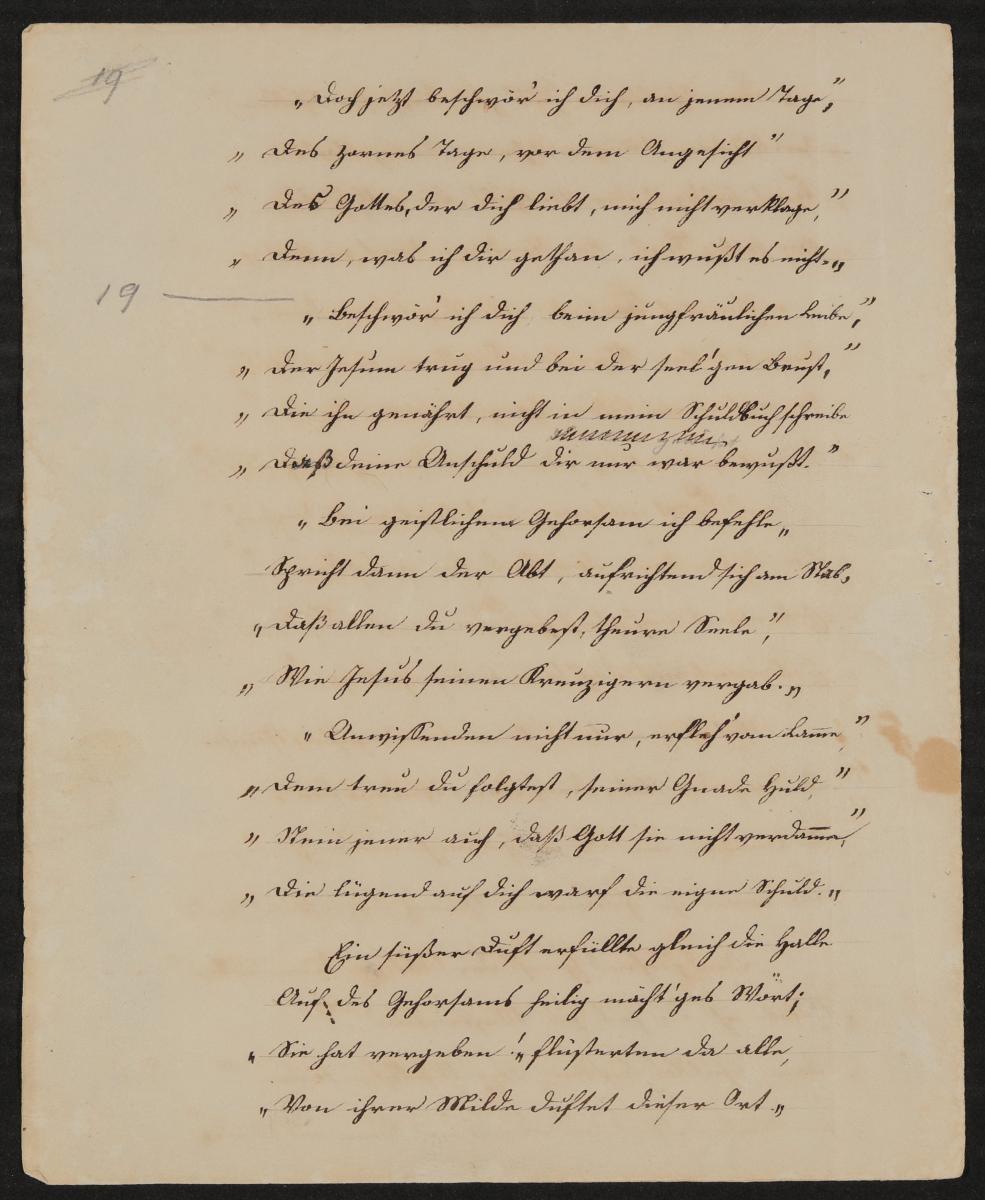 19
„Doch jetzt beschwör' ich dich, an jenem Tage,"
„Des Zornes Tage, vor dem Angesicht"
„Des Gottes, der dich liebt, mich nicht verklage,"
„Denn, was ich dir gethan, ich wußt es nicht.„
19 —
„Beschwör' ich dich beim jungfräulichen Leibe,"
„Der Jesum trug und bei der seel'gen Brust,"
„Die ihn genährt, nicht in mein Schuldbuch schreibe
„Daß deine Unschuld dir nur war bewußt."
„Bei geistlichem Gehorsam ich befehle„
Spricht dann der Abt, aufrichtend sich am Stab,
„Daß allen du vergebest, theure Seele",
„Wie Jesus seinen Kreuzigern vergab.„
„Unwissenden nicht nur, erfleh' vom Lam̄e,"
„Dem treu du folgtest, seiner Gnade Huld,"
„Nein jener auch, daß Gott sie nicht verdam̄e,"
„Die lügend auf dich warf die eigne Schuld.„
Ein süßer Duft erfüllte gleich die Halle
Auf des Gehorsams heilig mächt'ges Wort;
„Sie hat vergeben!„ flüsterten da alle,
„Von ihrer Milde duftet dieser Ort.„